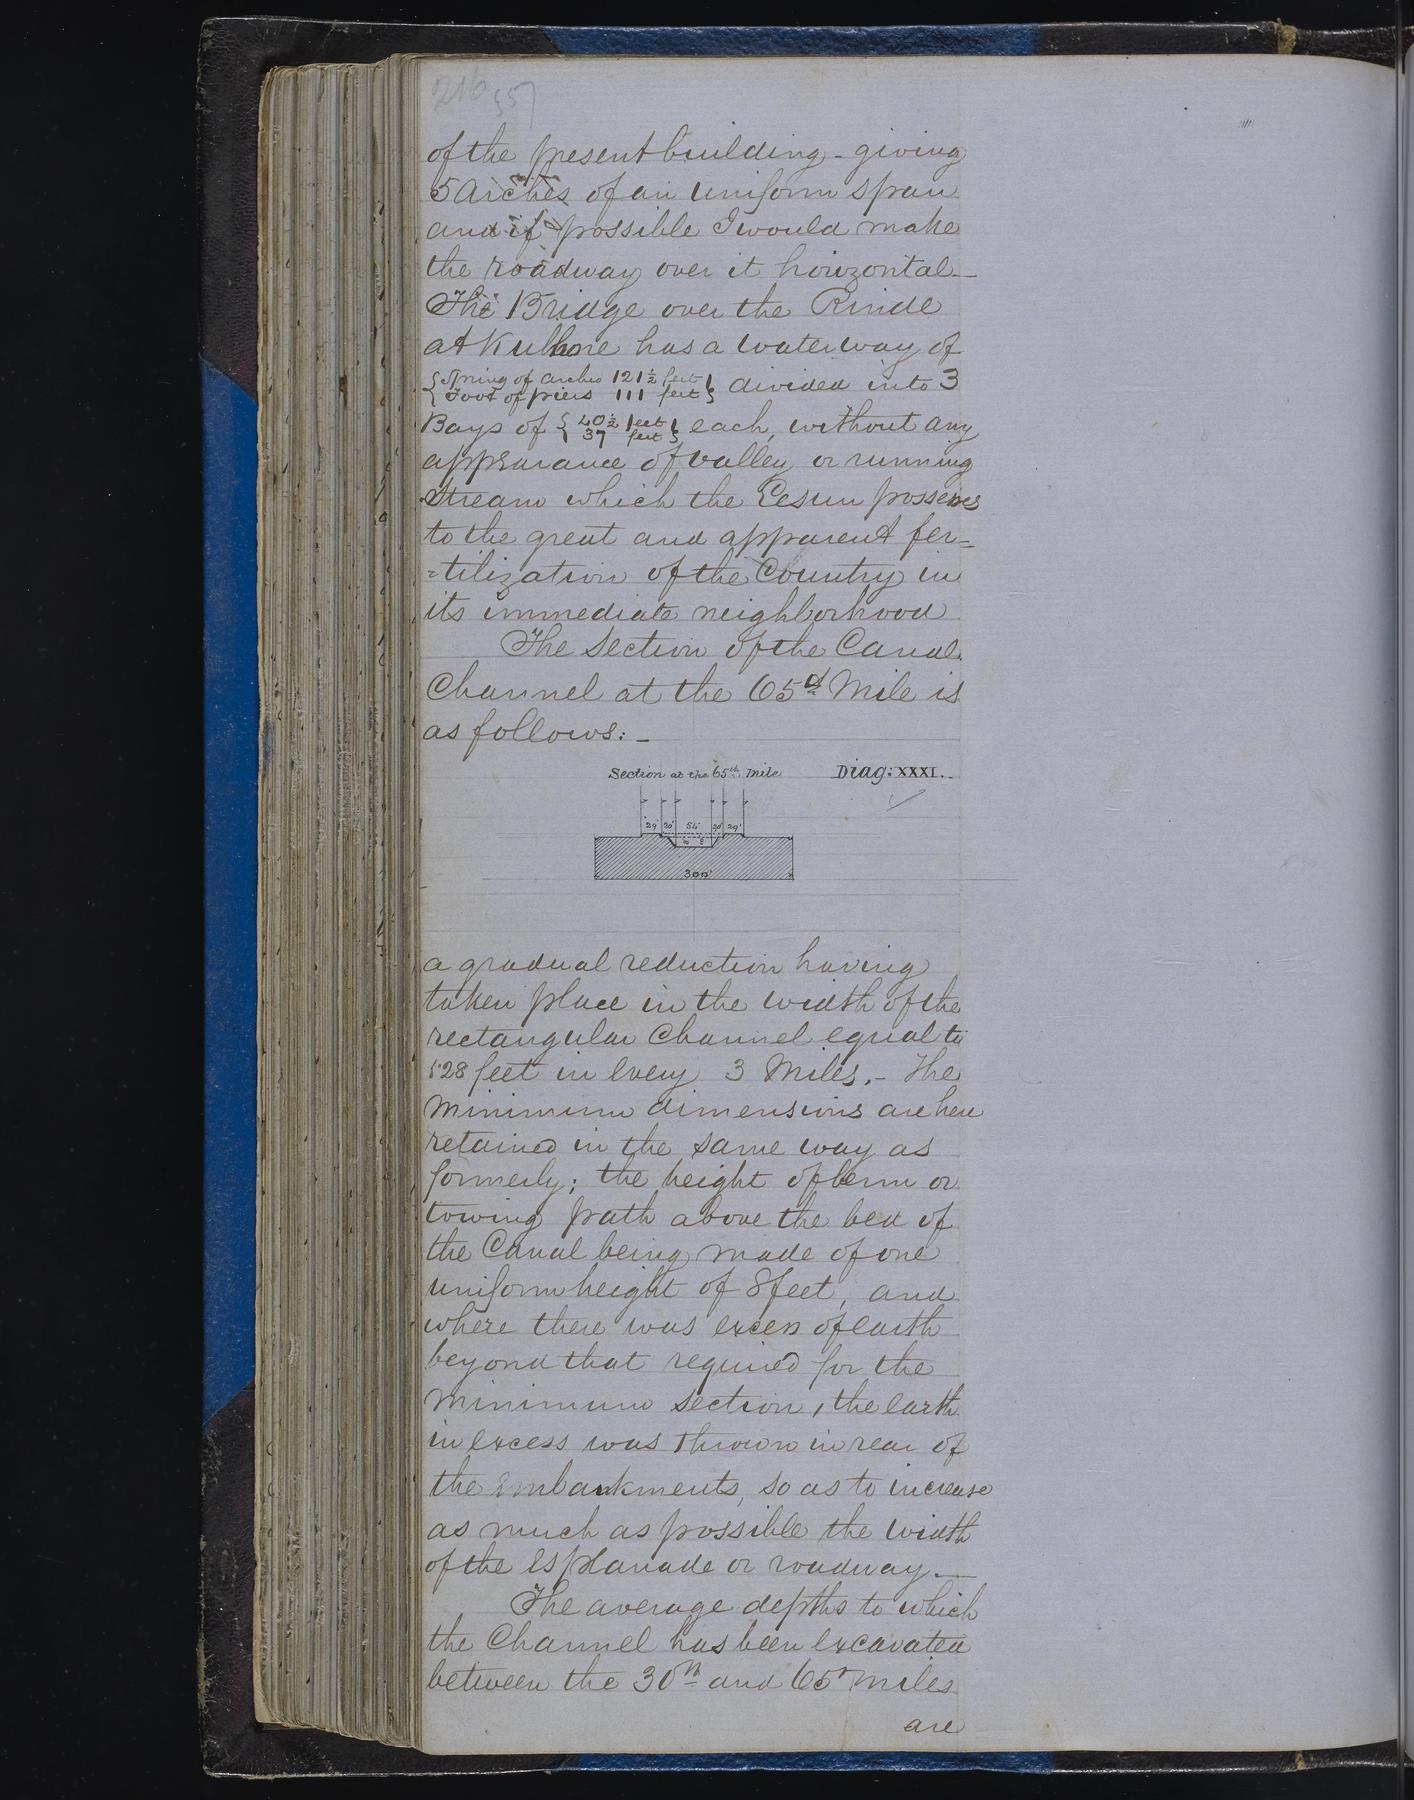 216 357
of the present building - giving
5 Arches of an uniform span
and if possible I would make
the roadway over it horizontal_
The Bridge over the Rinde
at Kulhore has a waterway of
{Spring of arches 121½ feet} divided into 3
{Foot of piers 111 feet}
Bays of {40½ feet} each, without any
{37 feet}
appearance of valley or running
stream which the Eesun possesses
to the great and apparent fer=
=tilization of the Country in
its immediate neighborhood
The Section of the Canal
Channel at the 65th Mile is
as follows:_
Section at the 65th Mile Diag: XXXI.
29' 20' 54' 20' 29'
8
300'
a gradual reduction having
taken place in the width of the
rectangular Channel equal to
5.28 feet in every 3 Miles.- The
minimum dimensions are here
retained in the same way as
formerly; the height of berm or
towing path above the bed of
the Canal being made of one
uniform height of 8 feet, and
where there was excess of earth
beyond that required for the
minimum section, the earth
in excess was thrown in rear of
the Embankments, so as to increase
as much as possible the width
of the esplanade or roadway._
The average depths to which
the Channel has been excavated
between the 30th and 65th miles
are